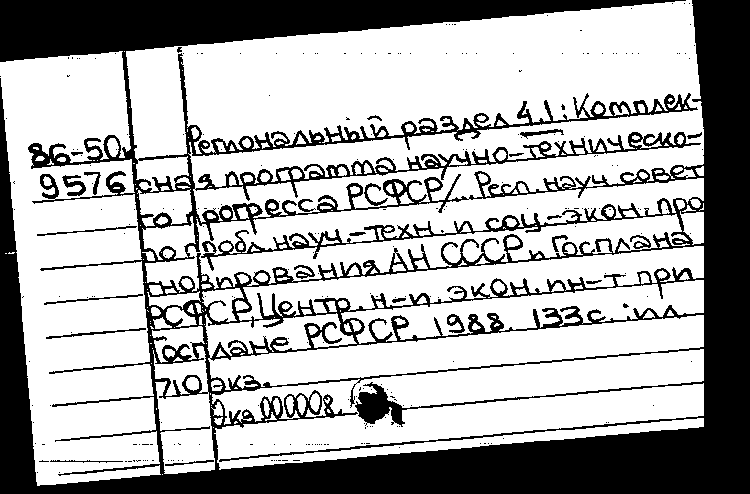 Региональный раздел 4.1: Комплек-
86-50к
9576 сная программа научно-техническо-
го прогресса РСФСР/... Респ. науч. совет
по пробл. науч.-техн. и соц.-экон. про
гнозирования АН СССР и Госплана
РСФСР, Центр. н-и. экон. ин-т при
Госплане РСФСР. 1988. 133с. : ил.
710 экз.
Экз 000008.